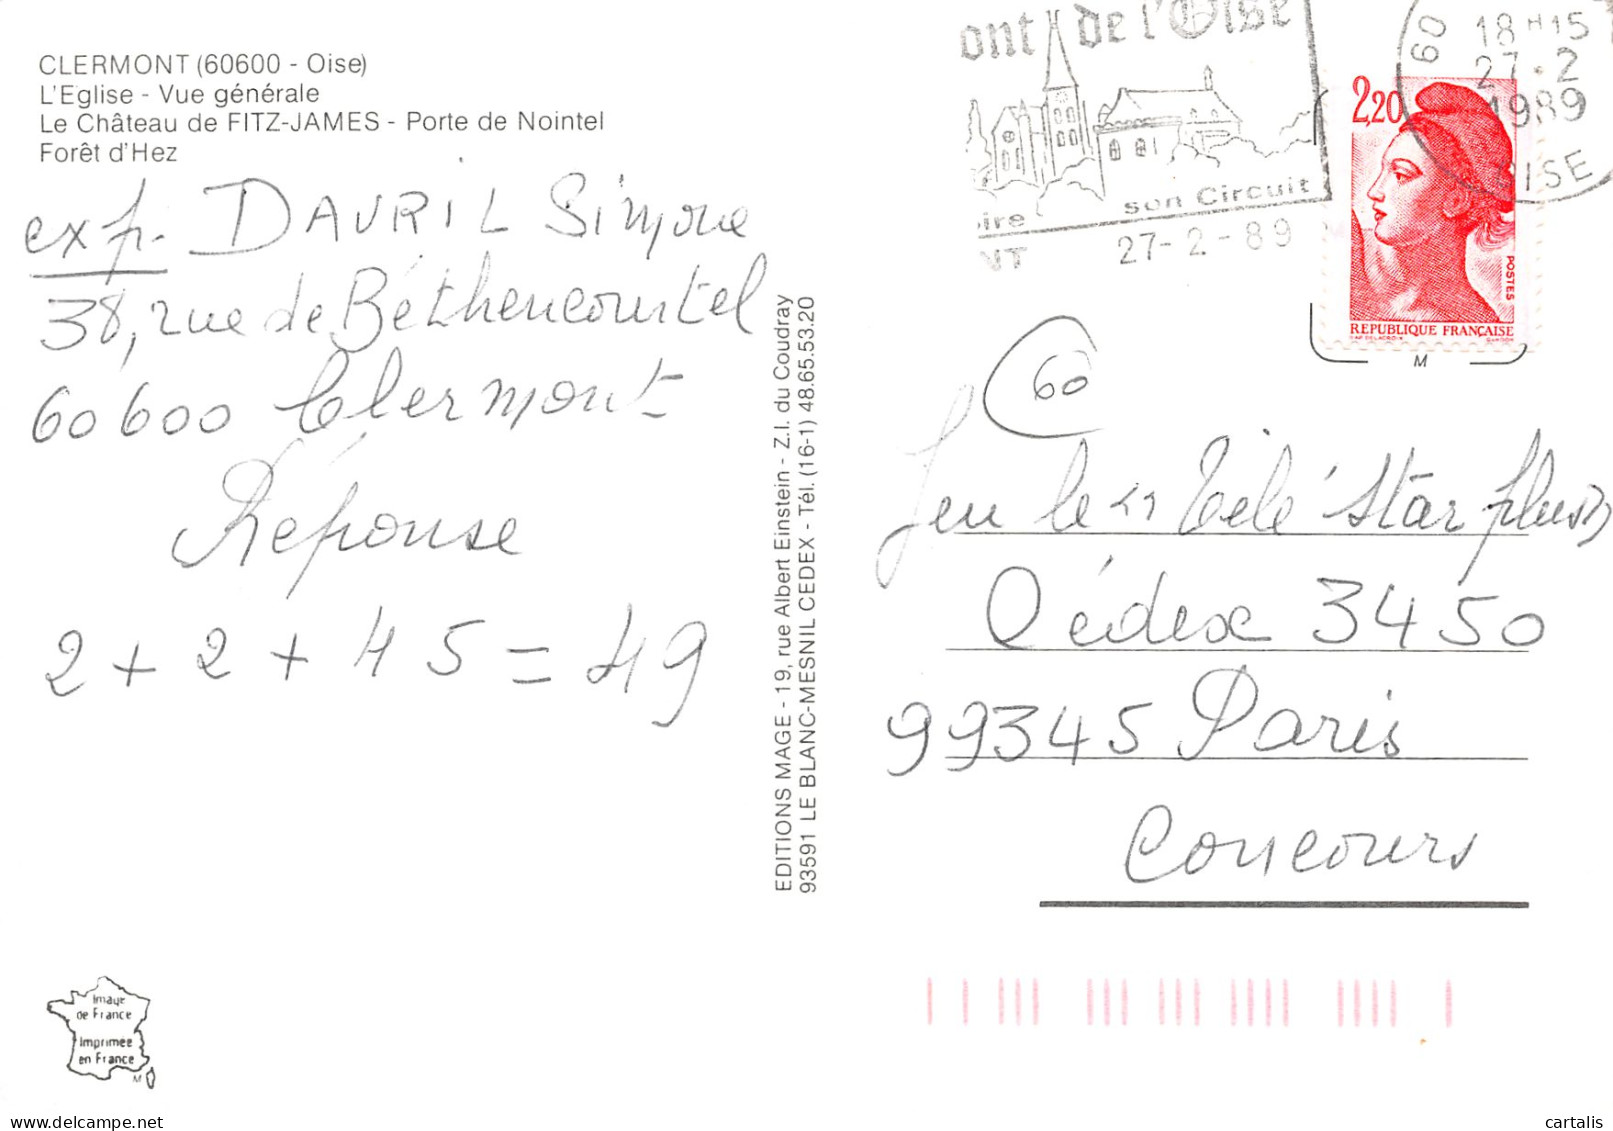 CLERMONT (60600 - Oise)
L'Eglise - Vue générale
Le Château de FITZ-JAMES - Porte de Nointel
Forêt d'Hez
exp. DAVRIL Simone
38, rue de Béthencourtel
60600 Clermont
Réponse
2 + 2 + 45 = 49
EDITIONS MAGE - 19, rue Albert Einstein - Z.I. du Coudray
93591 LE BLANC-MESNIL CEDEX - Tél. (16-1) 48.65.53.20
ont de l'Oise
oire son Circuit
NT 27-2-89
60
18 H 15
27-2
1989
OISE
2,20
POSTES
REPUBLIQUE FRANÇAISE
M
60
Jeu le "Télé Star plus"
Cédex 3450
99345 Paris
Concours
Image
de France
Imprimée
en France
M
cartalis
https://www.delcampe.net